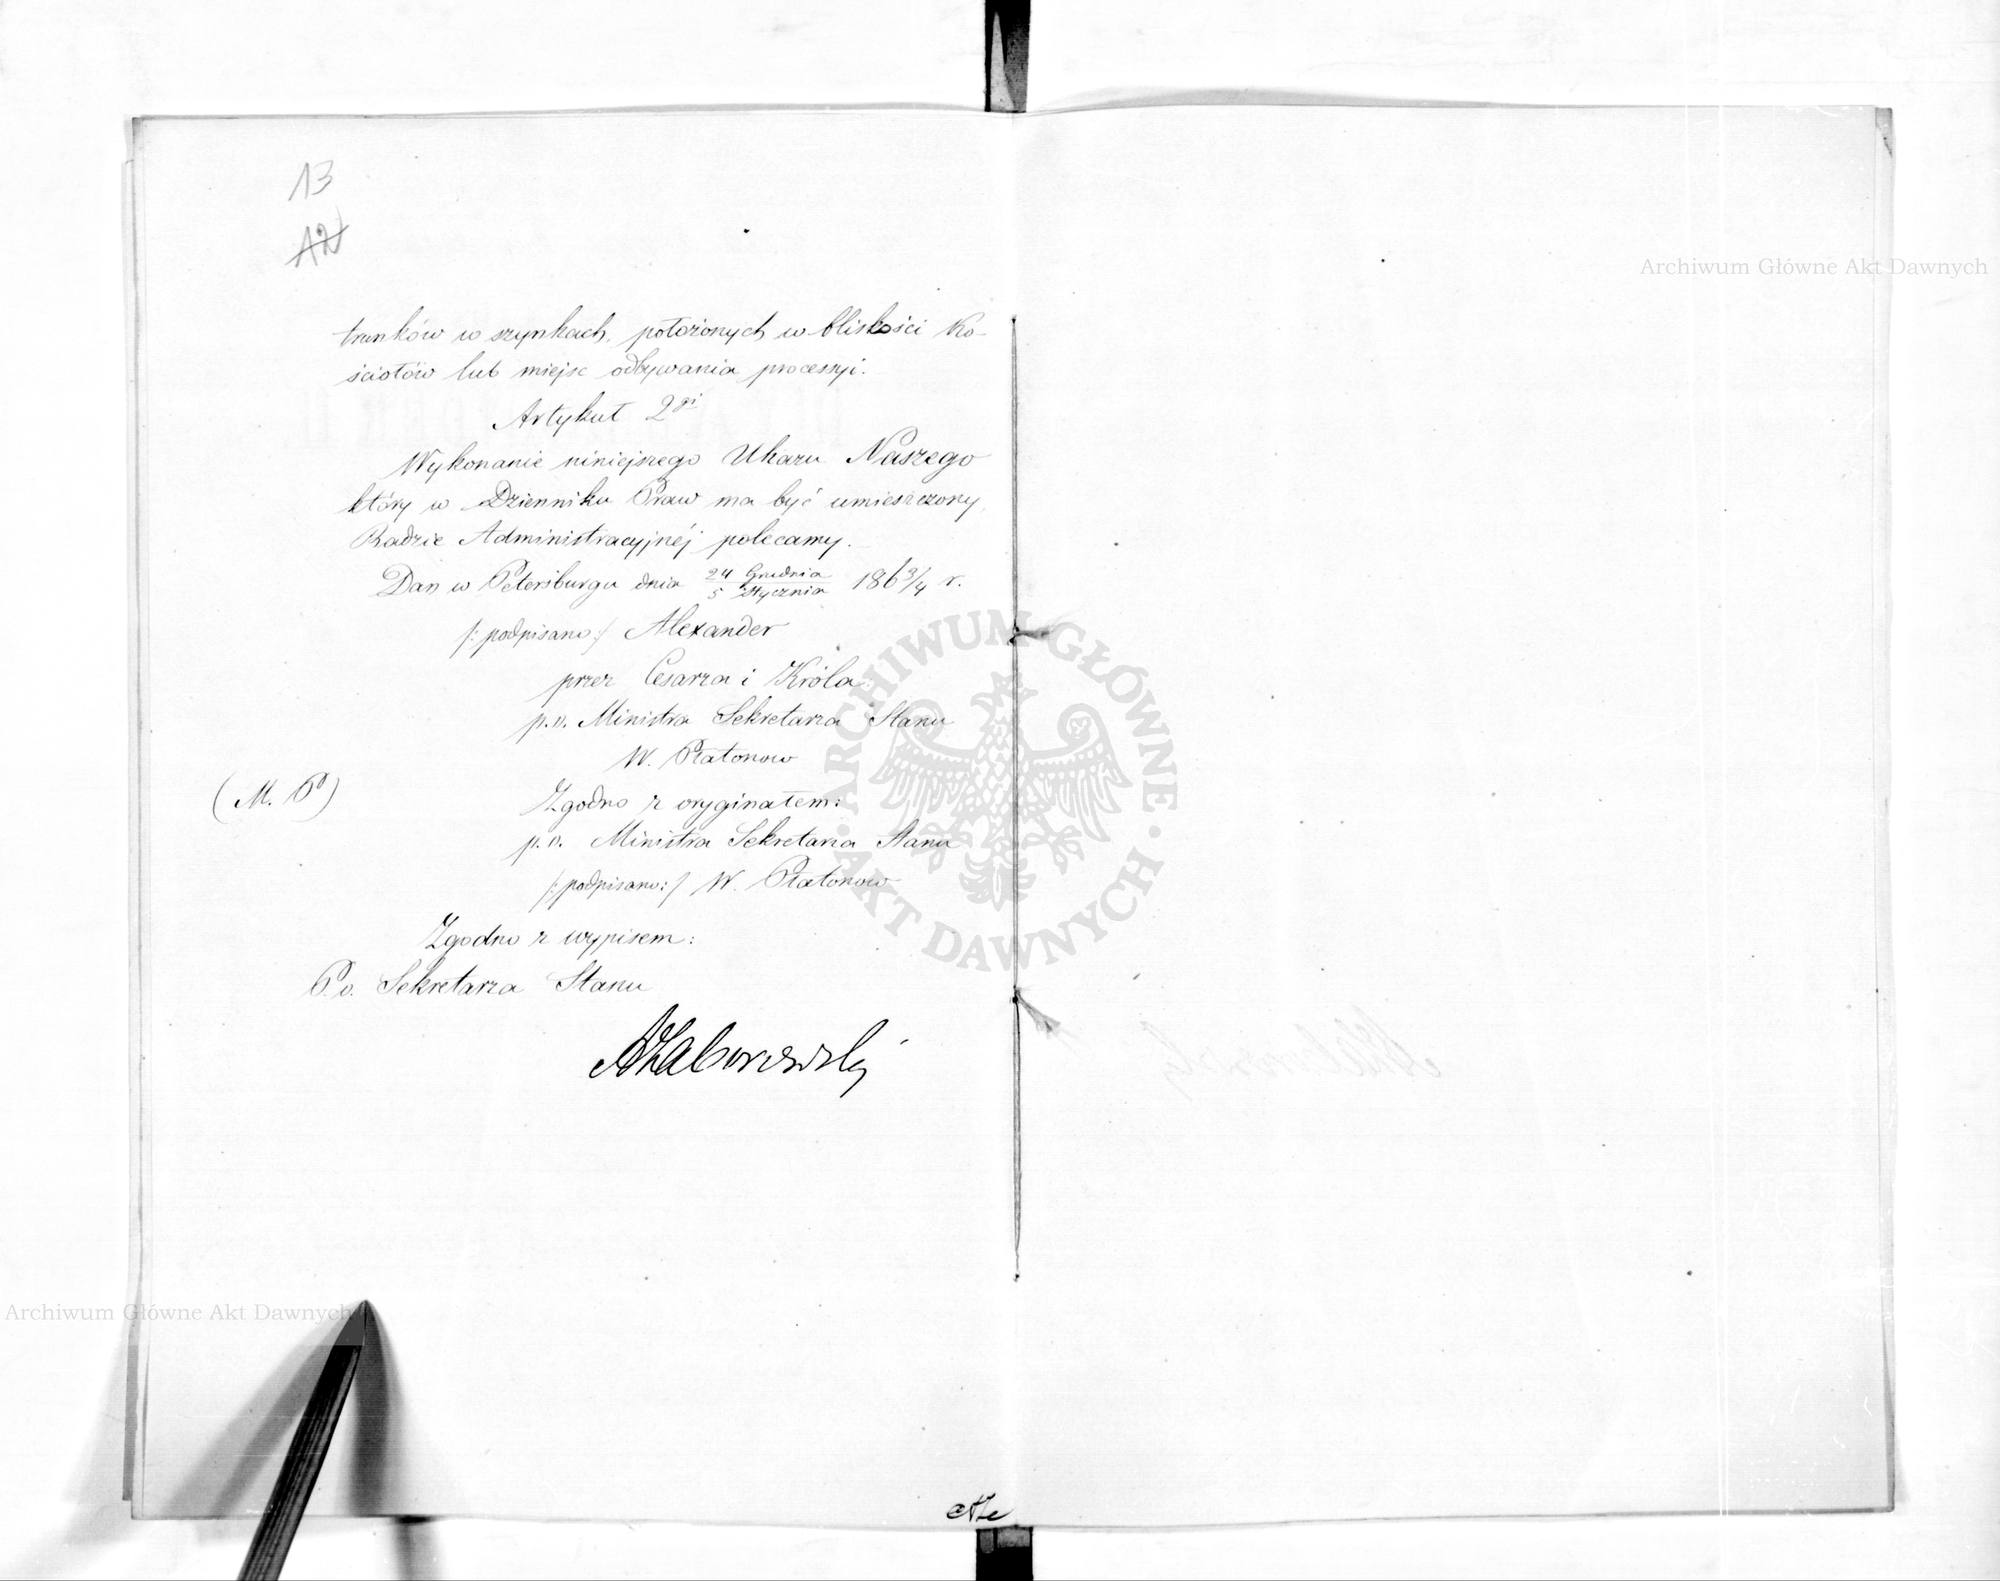 13
12
trunków w szynkach, położonych w bliskości Ko-
ściołów lub miejsc odbywania processyi.
Artykuł 2gi
Wykonanie niniejszego Ukazu Naszego
który w Dzienniku Praw ma być umieszczony,
Radzie Administracyjnéj polecamy.
Dan w Petersburgu dnia 24 Grudnia / 5 Stycznia 1863/4 r.
/: podpisano :/ Alexander
przez Cesarza i Króla:
p.o. Ministra Sekretarza Stanu
W. Płatonow
(M. P)
Zgodno z oryginałem:
p.o. Ministra Sekretarza Stanu
/: podpisano: / W. Płatonow
Zgodno z wypisem:
P.o. Sekretarza Stanu
AZaborowski
Archiwum Główne Akt Dawnych
ARCHIWUM GŁÓWNE AKT DAWNYCH
Archiwum Główne Akt Dawnych